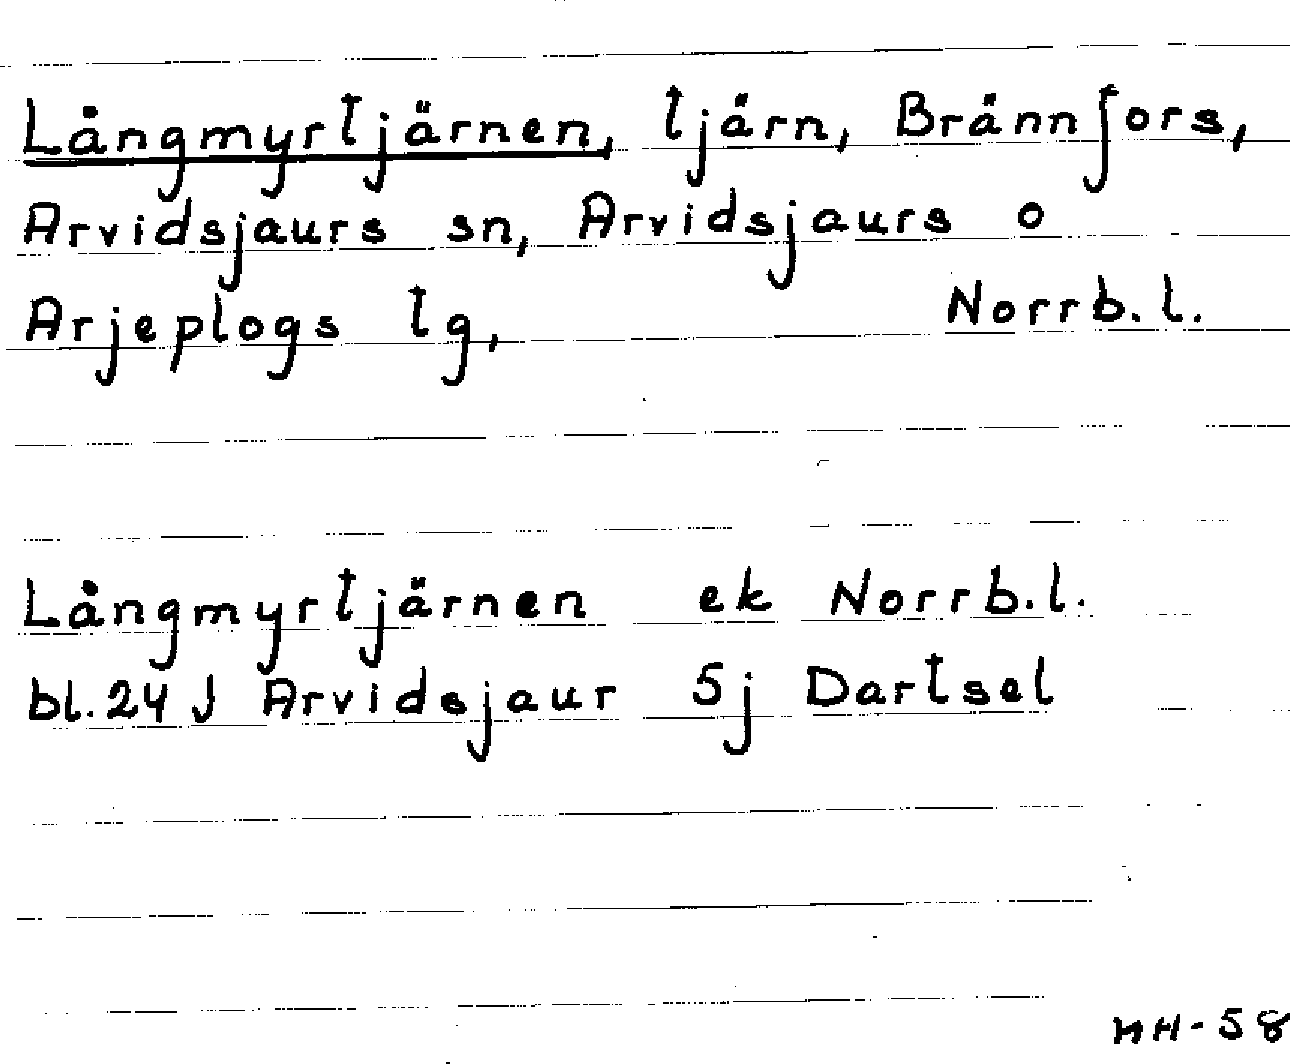 Långmyrtjärnen, tjärn, Brännfors,
Arvidsjaurs sn, Arvidsjaurs o
Arjeplogs tg, Norrb.l.
Långmyrtjärnen ek Norrb.l.
bl.24 J Arvidsjaur 5j Dartsel
MH-58